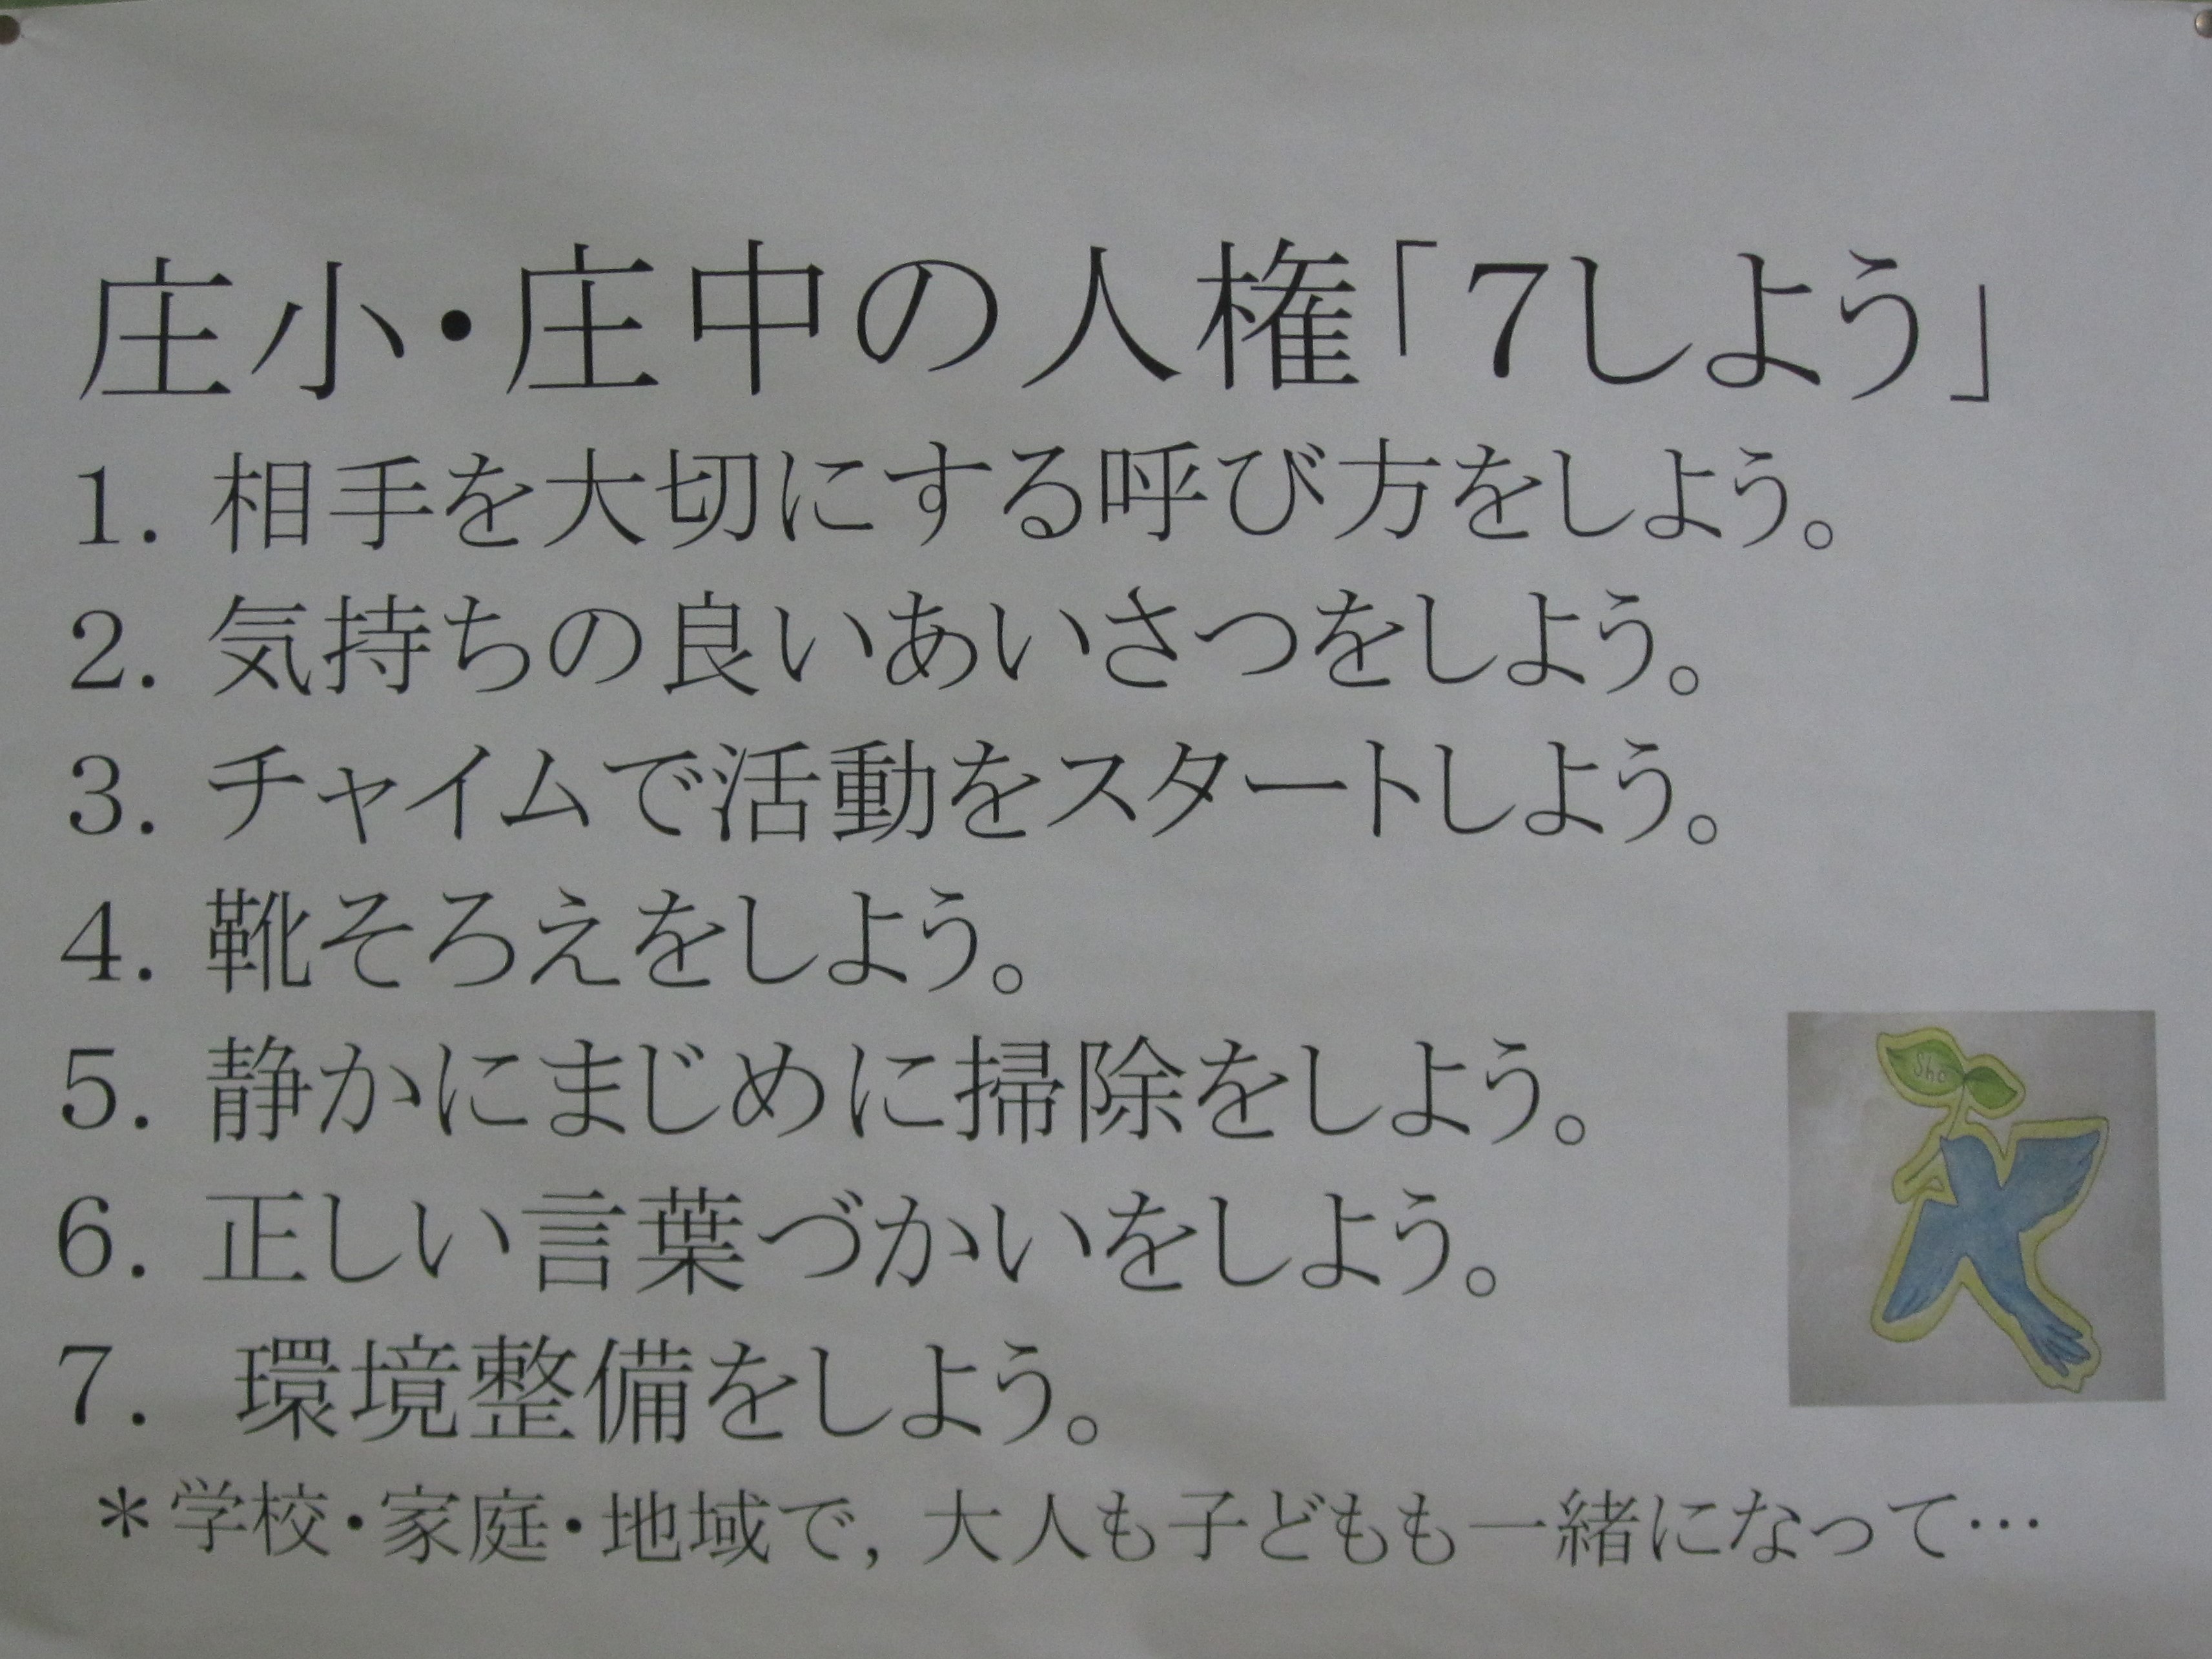 庄小・庄中の人権「7しよう」
1. 相手を大切にする呼び方をしよう。
2. 気持ちの良いあいさつをしよう。
3. チャイムで活動をスタートしよう。
4. 靴そろえをしよう。
5. 静かにまじめに掃除をしよう。
6. 正しい言葉づかいをしよう。
7. 環境整備をしよう。
＊学校・家庭・地域で，大人も子どもも一緒になって…
Sho